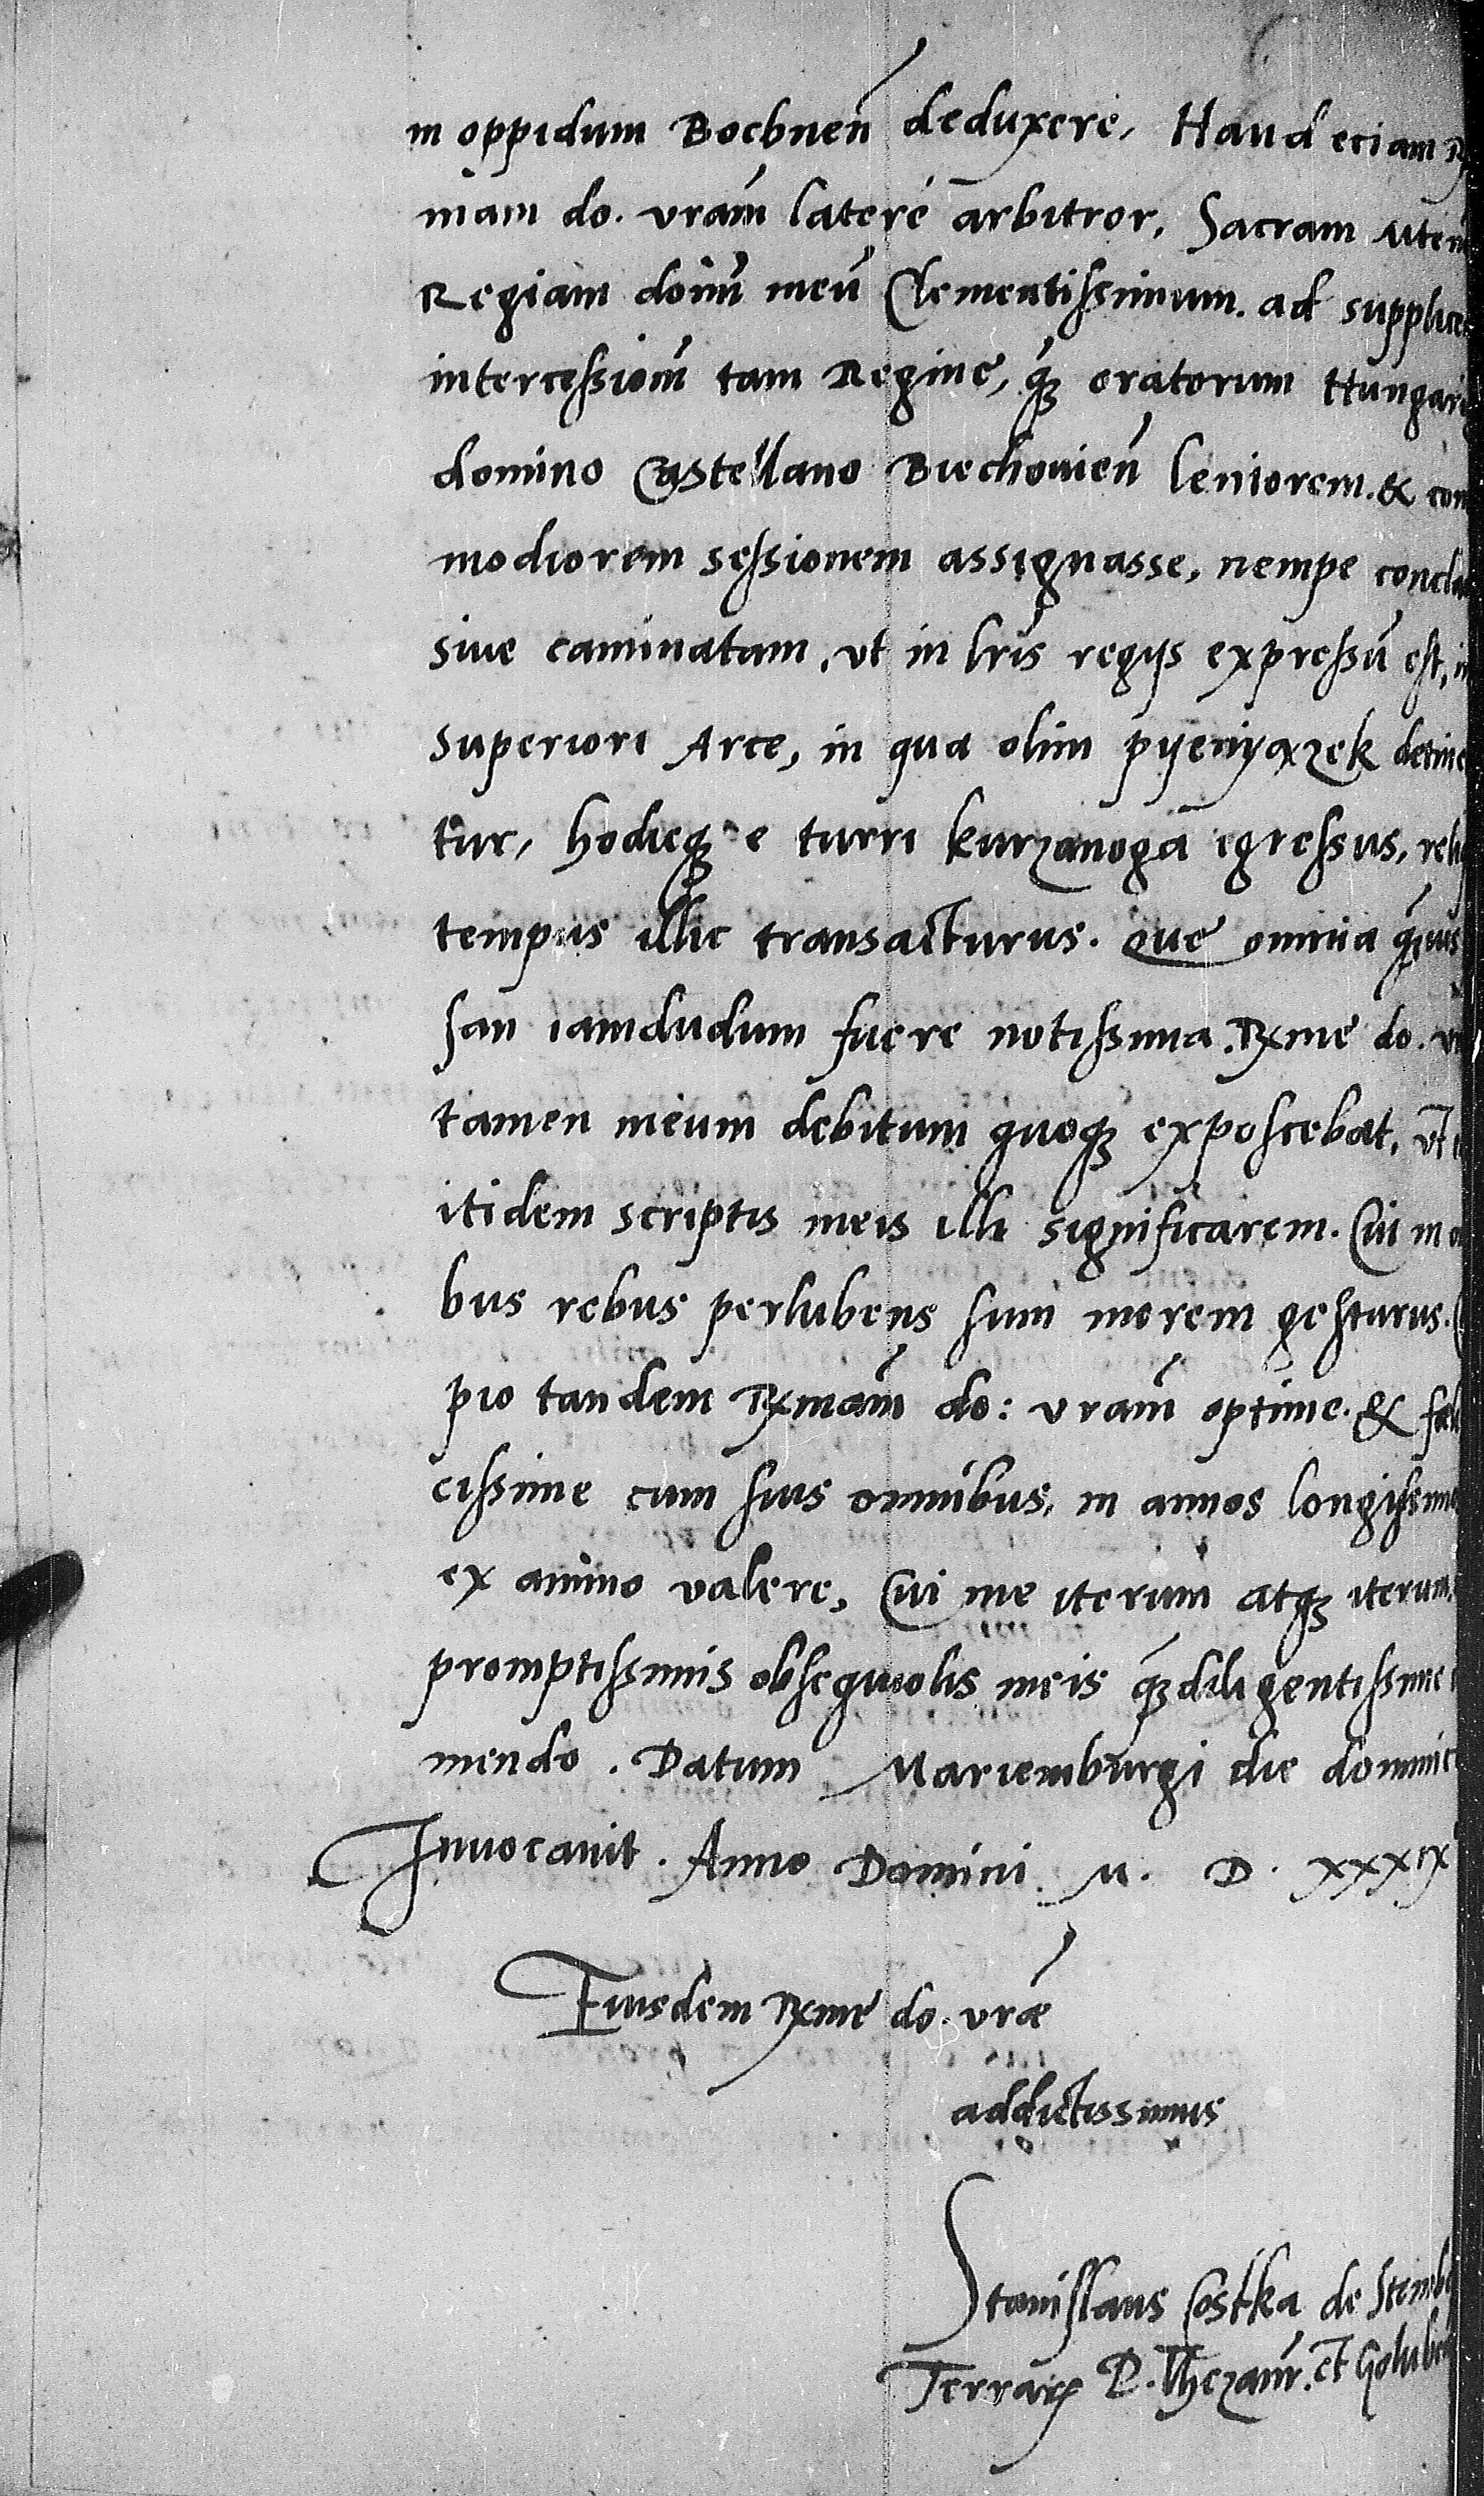 in oppidum Bochnen̄ deduxere, Haud eciam
mam do. vram̄ latere arbitror, Sacram Mtem̄
Regiam doım̄ meū Clementissimum. ad supplices
intercessiom̄ tam Regine, qꝫ oratorum Hungari
domino Castellano Biechouien̄ leniorem. & com
modiorem sessionem assignasse, nempe conclaue
siue caminatam, vt in lris regijs expressū est, in
superiori Arce, in qua olim pyenyązek detine
tur, hodieqꝫ e turri kurzanogā egressus, reliq
tempus illic transacturus. Que omnia
san iamdudum fuere notissima. Rx̄me do.
tamen meum debitum quoqꝫ exposcebat, vt
itidem scriptis meis illi significarem. Cui in o
bus rebus perlubens sum morem gesturus.
pio tandem Rx̄mam̄ do: vram̄ optime. & feli
cissime cum suis omnibus, in annos longissimos
ex animo valere, Cui me iterum atqꝫ iterum,
promptissimis obsequiolis meis qꝫdiligentissime
mendo. Datum Mariemburgi die dominica
Inuocauit. Anno Domini M. D. xxxix
Eiusdem Rx̄me do. vræ
addictissimus
Stanislaus Costka de Stemb
Terrarꝝ P. Thezaur̄. et Golubien̄